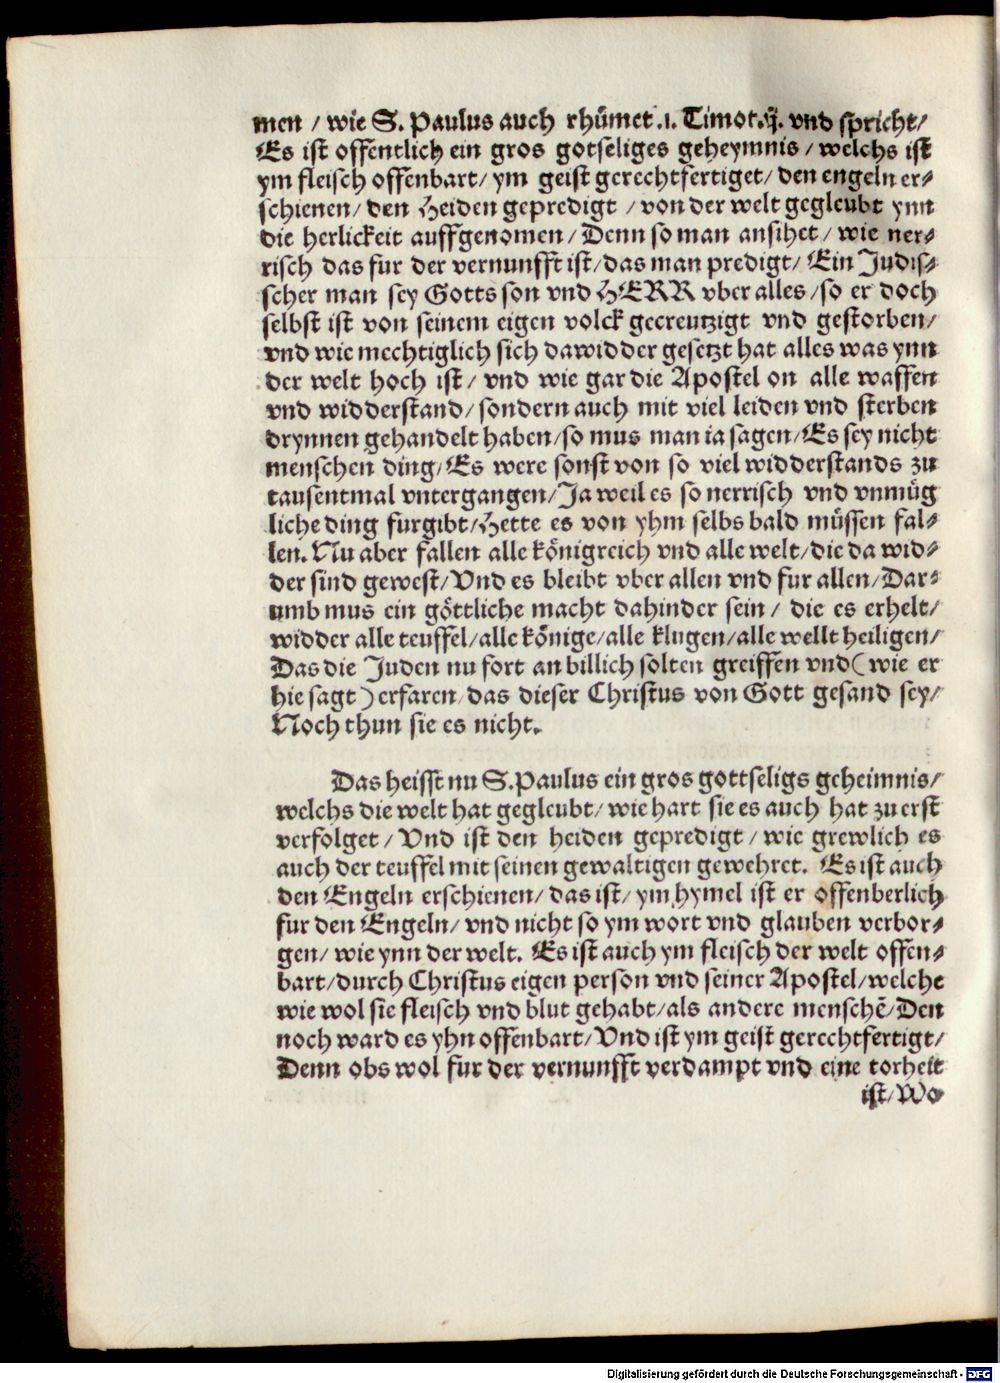 men / wie S. Paulus auch rhümet .1. Timot. ij. vnd spricht/
Es ist offentlich ein gros gotseliges geheymnis / welchs ist
ym fleisch offenbart/ ym geist gerechtfertiget/ den engeln er-
schienen/ den Heiden gepredigt / von der welt gegleubt ynn
die herlickeit auffgenomen/ Denn so man ansihet/ wie ner-
risch das fur der vernunfft ist/ das man predigt/ Ein Judis-
scher man sey Gotts son vnd HERR vber alles /so er doch
selbst ist von seinem eigen volck gecreutzigt vnd gestorben/
vnd wie mechtiglich sich dawidder gesetzt hat alles was ynn
der welt hoch ist/ vnd wie gar die Apostel on alle waffen
vnd widderstand/ sondern auch mit viel leiden vnd sterben
drynnen gehandelt haben/ so mus man ia sagen/ Es sey nicht
menschen ding/ Es were sonst von so viel widderstands zu
tausentmal vntergangen/ Ja weil es so nerrisch vnd vnmüg
liche ding furgibt/ Hette es von yhm selbs bald müssen fal-
len. Nu aber fallen alle königreich vnd alle welt/ die da wid-
der sind gewest/ Vnd es bleibt vber allen vnd fur allen/ Dar-
umb mus ein göttliche macht dahinder sein/ die es erhelt/
widder alle teuffel/ alle könige/ alle klugen/ alle wellt heiligen/
Das die Juden nu fort an billich solten greiffen vnd ( wie er
hie sagt ) erfaren/ das dieser Christus von Gott gesand sey/
Noch thun sie es nicht.
Das heisst nu S. Paulus ein gros gottseligs geheimnis/
welchs die welt hat gegleubt/ wie hart sie es auch hat zu erst
verfolget/ Vnd ist den heiden gepredigt/ wie grewlich es
auch der teuffel mit seinen gewaltigen gewehret. Es ist auch
den Engeln erschienen/ das ist/ ym hymel ist er offenberlich
fur den Engeln/ vnd nicht so ym wort vnd glauben verbor-
gen/ wie ynn der welt. Es ist auch ym fleisch der welt offen-
bart/ durch Christus eigen person vnd seiner Apostel/ welche
wie wol sie fleisch vnd blut gehabt/ als andere menschē/ Den
noch ward es yhn offenbart/ Vnd ist ym geist gerechtfertigt/
Denn obs wol fur der vernunfft verdampt vnd eine torheit
ist/ Wo-
Digitalisierung gefördert durch die Deutsche Forschungsgemeinschaft - DFG